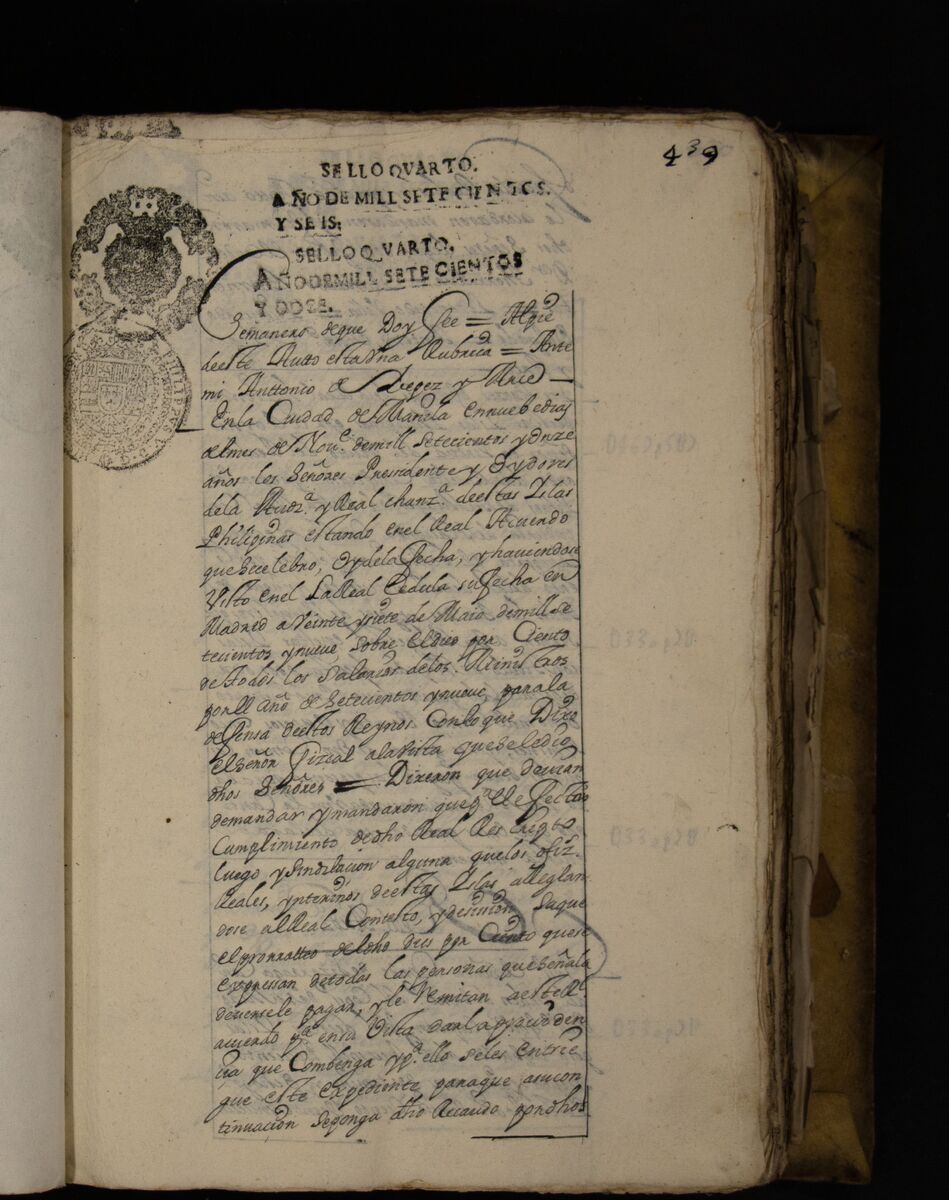 439
SELLO QVARTO.
AÑO DE MILL SETECIENTOS.
Y SEIS;
SELLO QVARTO,
AÑO DE MILL SETECIENTOS
Y DOCE.
Semanero deque Doy Fee = Al pie
deeste Autto esta Vna Rubrica = Ante
mi Anttonio de Yepez y Arce
En la Ciudad de Manila ennuebe dias
del mes de Nou.e demill Setecientos y onze
años los Señores Presidente y Oydores
dela Aud.a y Real chanz.a deestas Yslas
Philipinas estando enel Real Acuerdo
que se celebro, oy dela fecha, y haviendose
Visto en el La Real Cedula su fecha en
Madrid a Veinte y siete de Maio demill se
tecientos y nueve sobre el dies por Ciento
de todos los salarios delos Ministros
por el año de Setecientos y nueve, para la
defensa deestos Reynos Con lo que Dixo
el señor Fizcal a la Vista que se le dio
dhos Señores = Dixeron que deuian
demandar y mandaron que p.a el efectivo
Cumplimiento dedho Real Rescripto
luego y sin dilacion alguna quelos ofiz.s
Reales, ynterinos deestas Yslas arreglan
dose al Real Contesto, y decision saque
el prorratteo del dho dies por Ciento que se
expresan detodas las personas que señala
deuersele pagar, y le Remitan a este R.l
acuerdo p.a en su Vista dar la prouiden
cia que Combenga y p.a ello seles entrie
gue este expediente para que a su con
tinuacion se ponga dho Recaudo por dhos